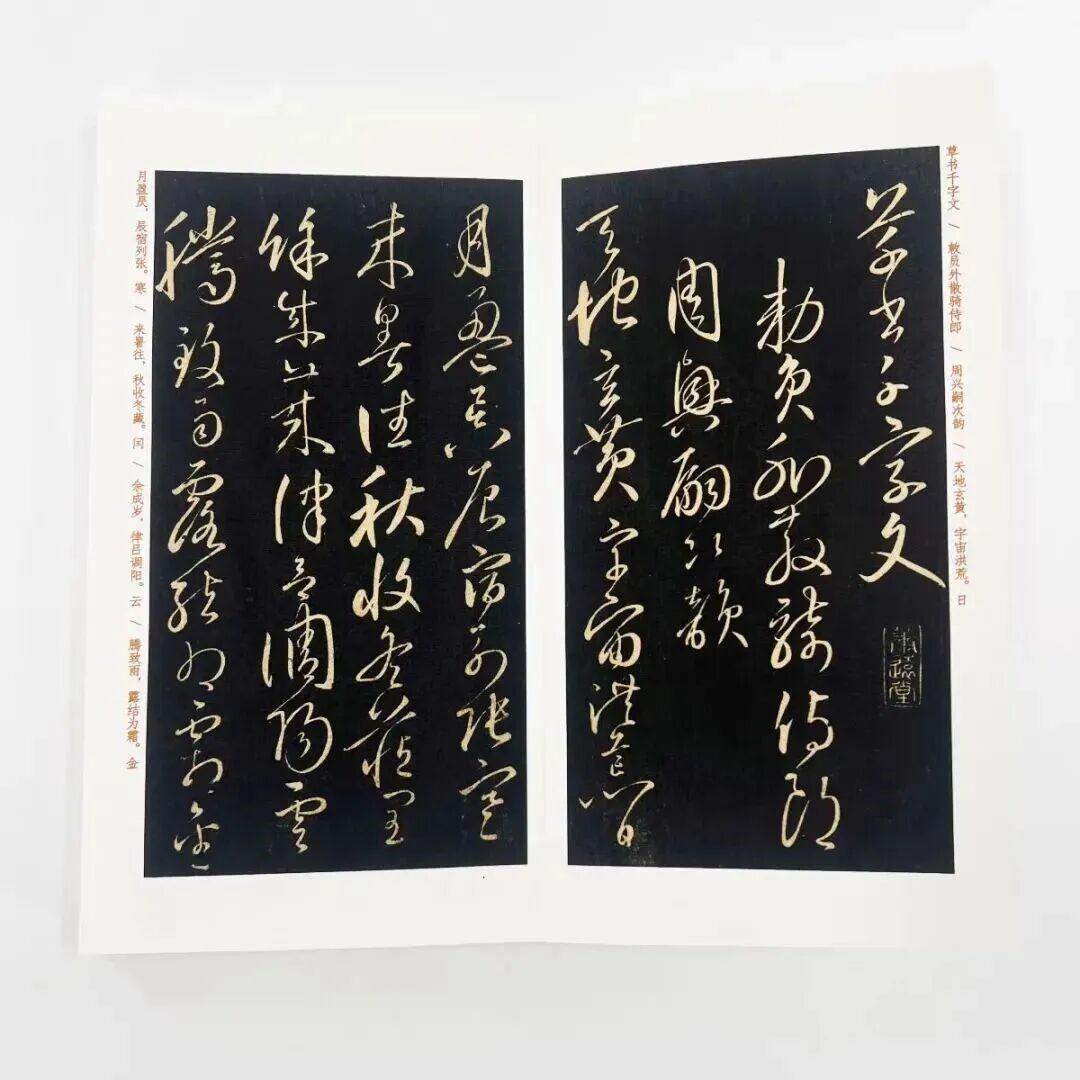 草书千字文 / 敕员外散骑侍郎 / 周兴嗣次韵 / 天地玄黄，宇宙洪荒。日
草書千字文
勅員外散騎侍郎
周興嗣次韻
天地玄黃宇宙洪荒日
月盈昃辰宿列張寒
來暑往秋收冬藏閏
餘成歲律呂調陽雲
騰致雨露結為霜金
月盈昃，辰宿列张。寒 / 来暑往，秋收冬藏。闰 / 余成岁，律吕调阳。云 / 腾致雨，露结为霜。金